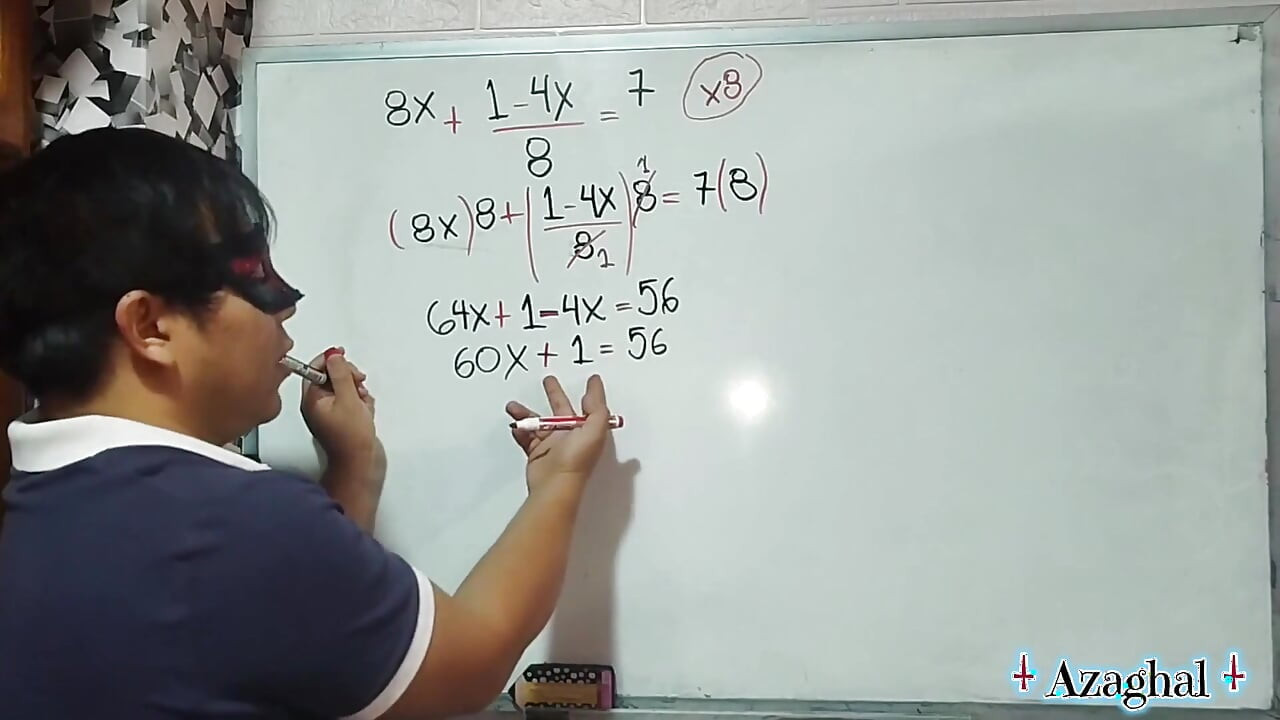 8x + 1-4x/8 = 7 x8
(8x)8+(1-4x/8 1)8 1= 7(8)
64x+1-4x=56
60x+1=56
Azaghal